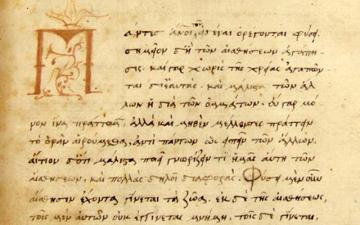 Πάντες ἄνοι τοῦ εἰδέναι ὀρέγονται φύσει
σημεῖον δ' ἡ τῶν αἰσθήσεων ἀγάπη
σις· καὶ γὰρ χωρὶς τῆς χρείας ἀγαπῶν
ται δι' ἑαυτάς· καὶ μάλιστα τῶν ἄλ
λων ἡ διὰ τῶν ὀμμάτων· οὐ γὰρ μό
νον ἵνα πράττωμεν ἀλλὰ καὶ μηθὲν μέλλοντες πράττειν
τὸ ὁρᾶν αἱρούμεθα, ἀντὶ πάντων ὡς εἰπεῖν τῶν ἄλλων,
αἴτιον δ' ὅτι μάλιστα ποιεῖ γνωρίζειν τὶ ἡμᾶς αὕτη τῶν
αἰσθήσεων, καὶ πολλὰς δηλοῖ διαφοράς· Φύσει μὲν οὖν
αἴσθησιν ἔχοντα γίνεται τὰ ζῶα, ἐκ δὲ τῆς αἰσθήσεως,
τοῖς μὲν αὐτῶν οὐκ ἐγγίνεται μνήμη, τοῖς δ' ἐγγίνεται,